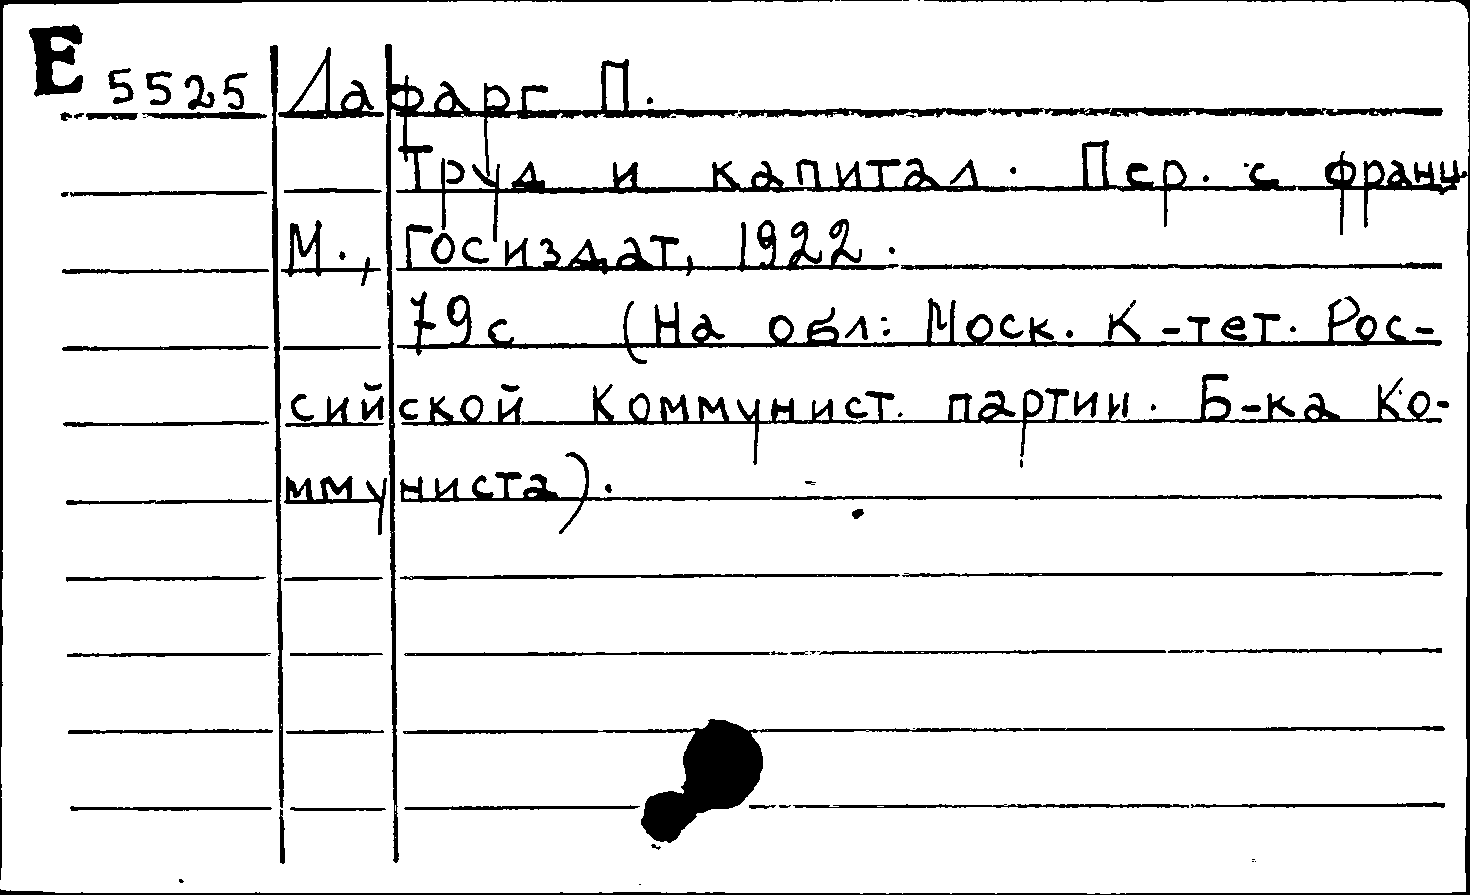 Е 5525 Лафарг П.
Труд и капитал. Пер. с франц.
М., Госиздат, 1922.
79с (На обл: Моск. К-тет. Рос-
сийской Коммунист. партии. Б-ка Ко-
ммуниста).